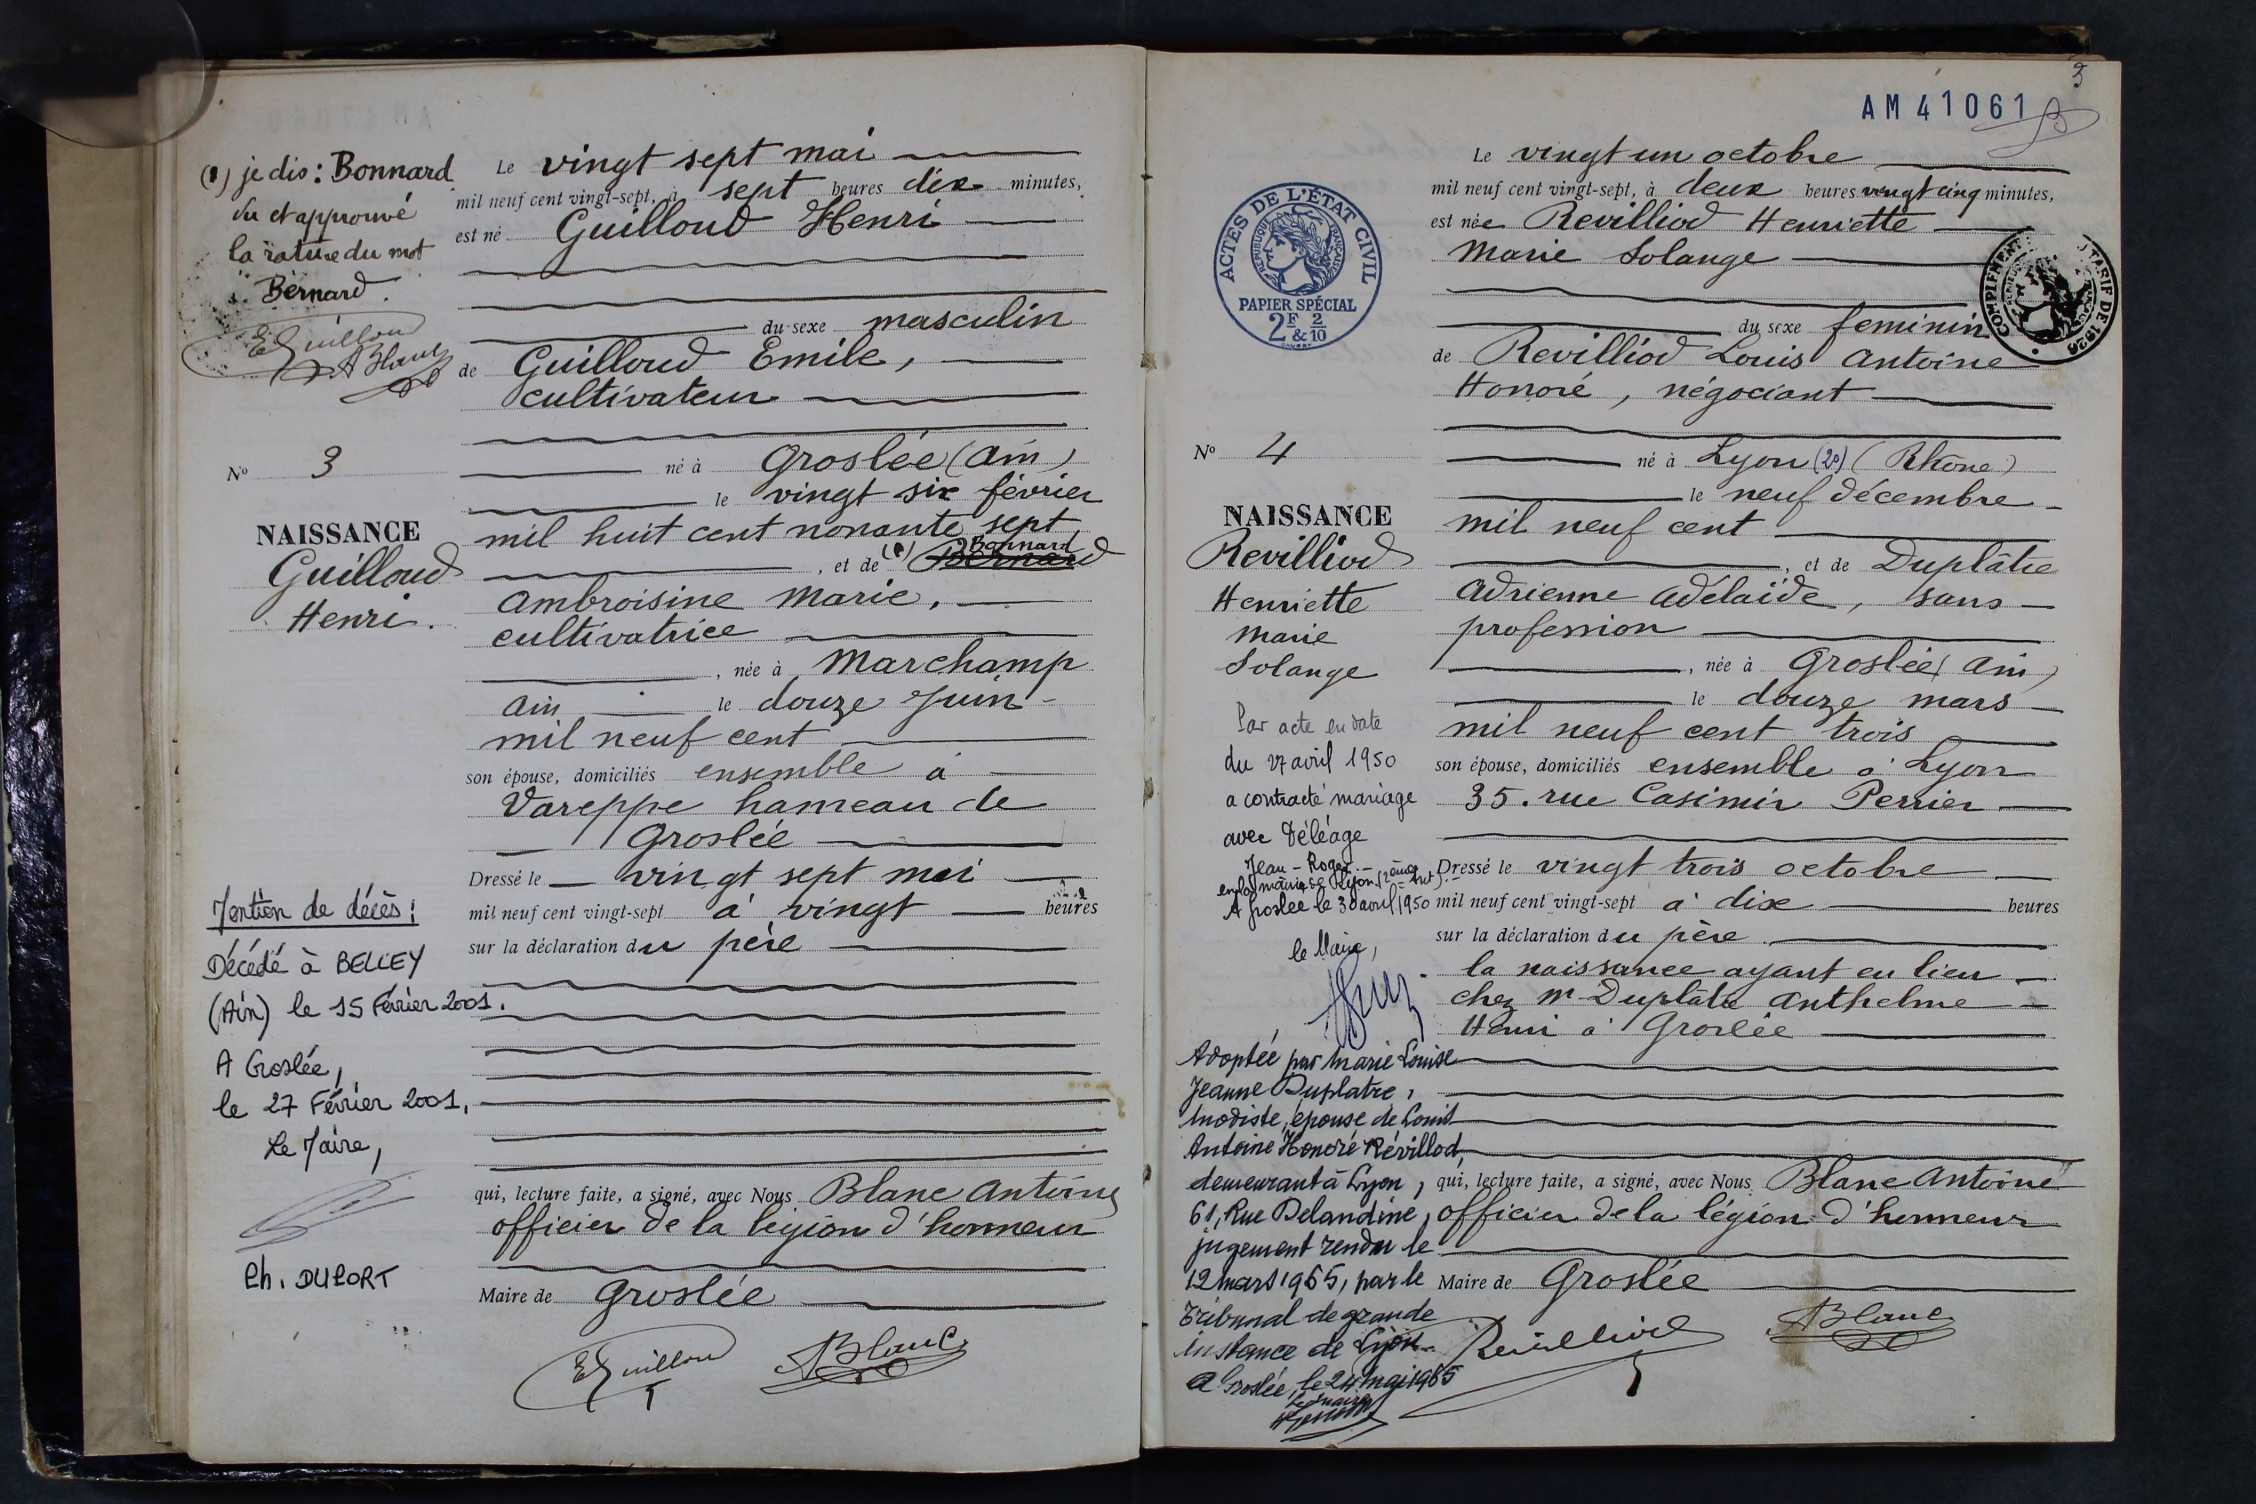 (1) je dis : Bonnard
vu et approuvé
la rature du mot
Bernard.
EGuilloud
ABlanc
Le vingt sept mai
mil neuf cent vingt-sept, à sept heures dix minutes,
est né Guilloud Henri
du sexe masculin
de Guilloud Emile,
cultivateur
né à Groslée (Ain)
le vingt six février
mil huit cent nonante sept
Bonnard
, et de (1) Bernard
Ambroisine Marie,
cultivatrice
, née à Marchamp
Ain le douze Juin
mil neuf cent
son épouse, domiciliés ensemble à
Vareppe hameau de
Groslée
Dressé le vingt sept mai
mil neuf cent vingt-sept à vingt heures
sur la déclaration du père
qui, lecture faite, a signé, avec Nous Blanc Antoine
officier de la légion d'honneur
Maire de Groslée
EGuilloud ABlanc
No 3
NAISSANCE
Guilloud
Henri.
Mention de décès :
Décédé à BELLEY
(Ain) le 15 Février 2001.
A Groslée,
le 27 Février 2001.
Le Maire,
Ch. DUPORT
3
AM 41061
ACTES DE L'ÉTAT CIVIL
RÉPUBLIQUE FRANÇAISE
PAPIER SPÉCIAL
2F & 2/10
COMPLÉMENT TARIF DE 1926
Le vingt un octobre
mil neuf cent vingt-sept, à deux heures vingt cinq minutes,
est née Revilliod Henriette
Marie Solange
du sexe feminin
de Revilliod Louis Antoine
Honoré, négociant
né à Lyon (2e) (Rhône)
le neuf décembre
mil neuf cent
, et de Duplâtre
Adrienne Adélaïde, sans
profession
, née à Groslée (Ain)
le douze mars
mil neuf cent trois
son épouse, domiciliés ensemble à Lyon
35. rue Casimir Perrier
Dressé le vingt trois octobre
mil neuf cent vingt-sept à dix heures
sur la déclaration du père
la naissance ayant eu lieu
chez Mr Duplâtre Anthelme
Henri à Groslée
qui, lecture faite, a signé, avec Nous Blanc Antoine
officier de la légion d'honneur
Maire de Groslée
Revilliod ABlanc
No 4
NAISSANCE
Revilliod
Henriette
Marie
Solange
Par acte en date
du 27 avril 1950
a contracté mariage
avec Déléage
Jean-Roger
en la mairie de Lyon
A Groslée le 30 avril 1950
le Maire,
Adoptée par Marie Louise
Jeanne Duplatre,
modiste, épouse de Louis
Antoine Honoré Révillod,
demeurant à Lyon,
61, Rue Delandine,
jugement rendu le
12 mars 1965, par le
Tribunal de grande
instance de Lyon.
A Groslée, le 24 mai 1965
Le maire